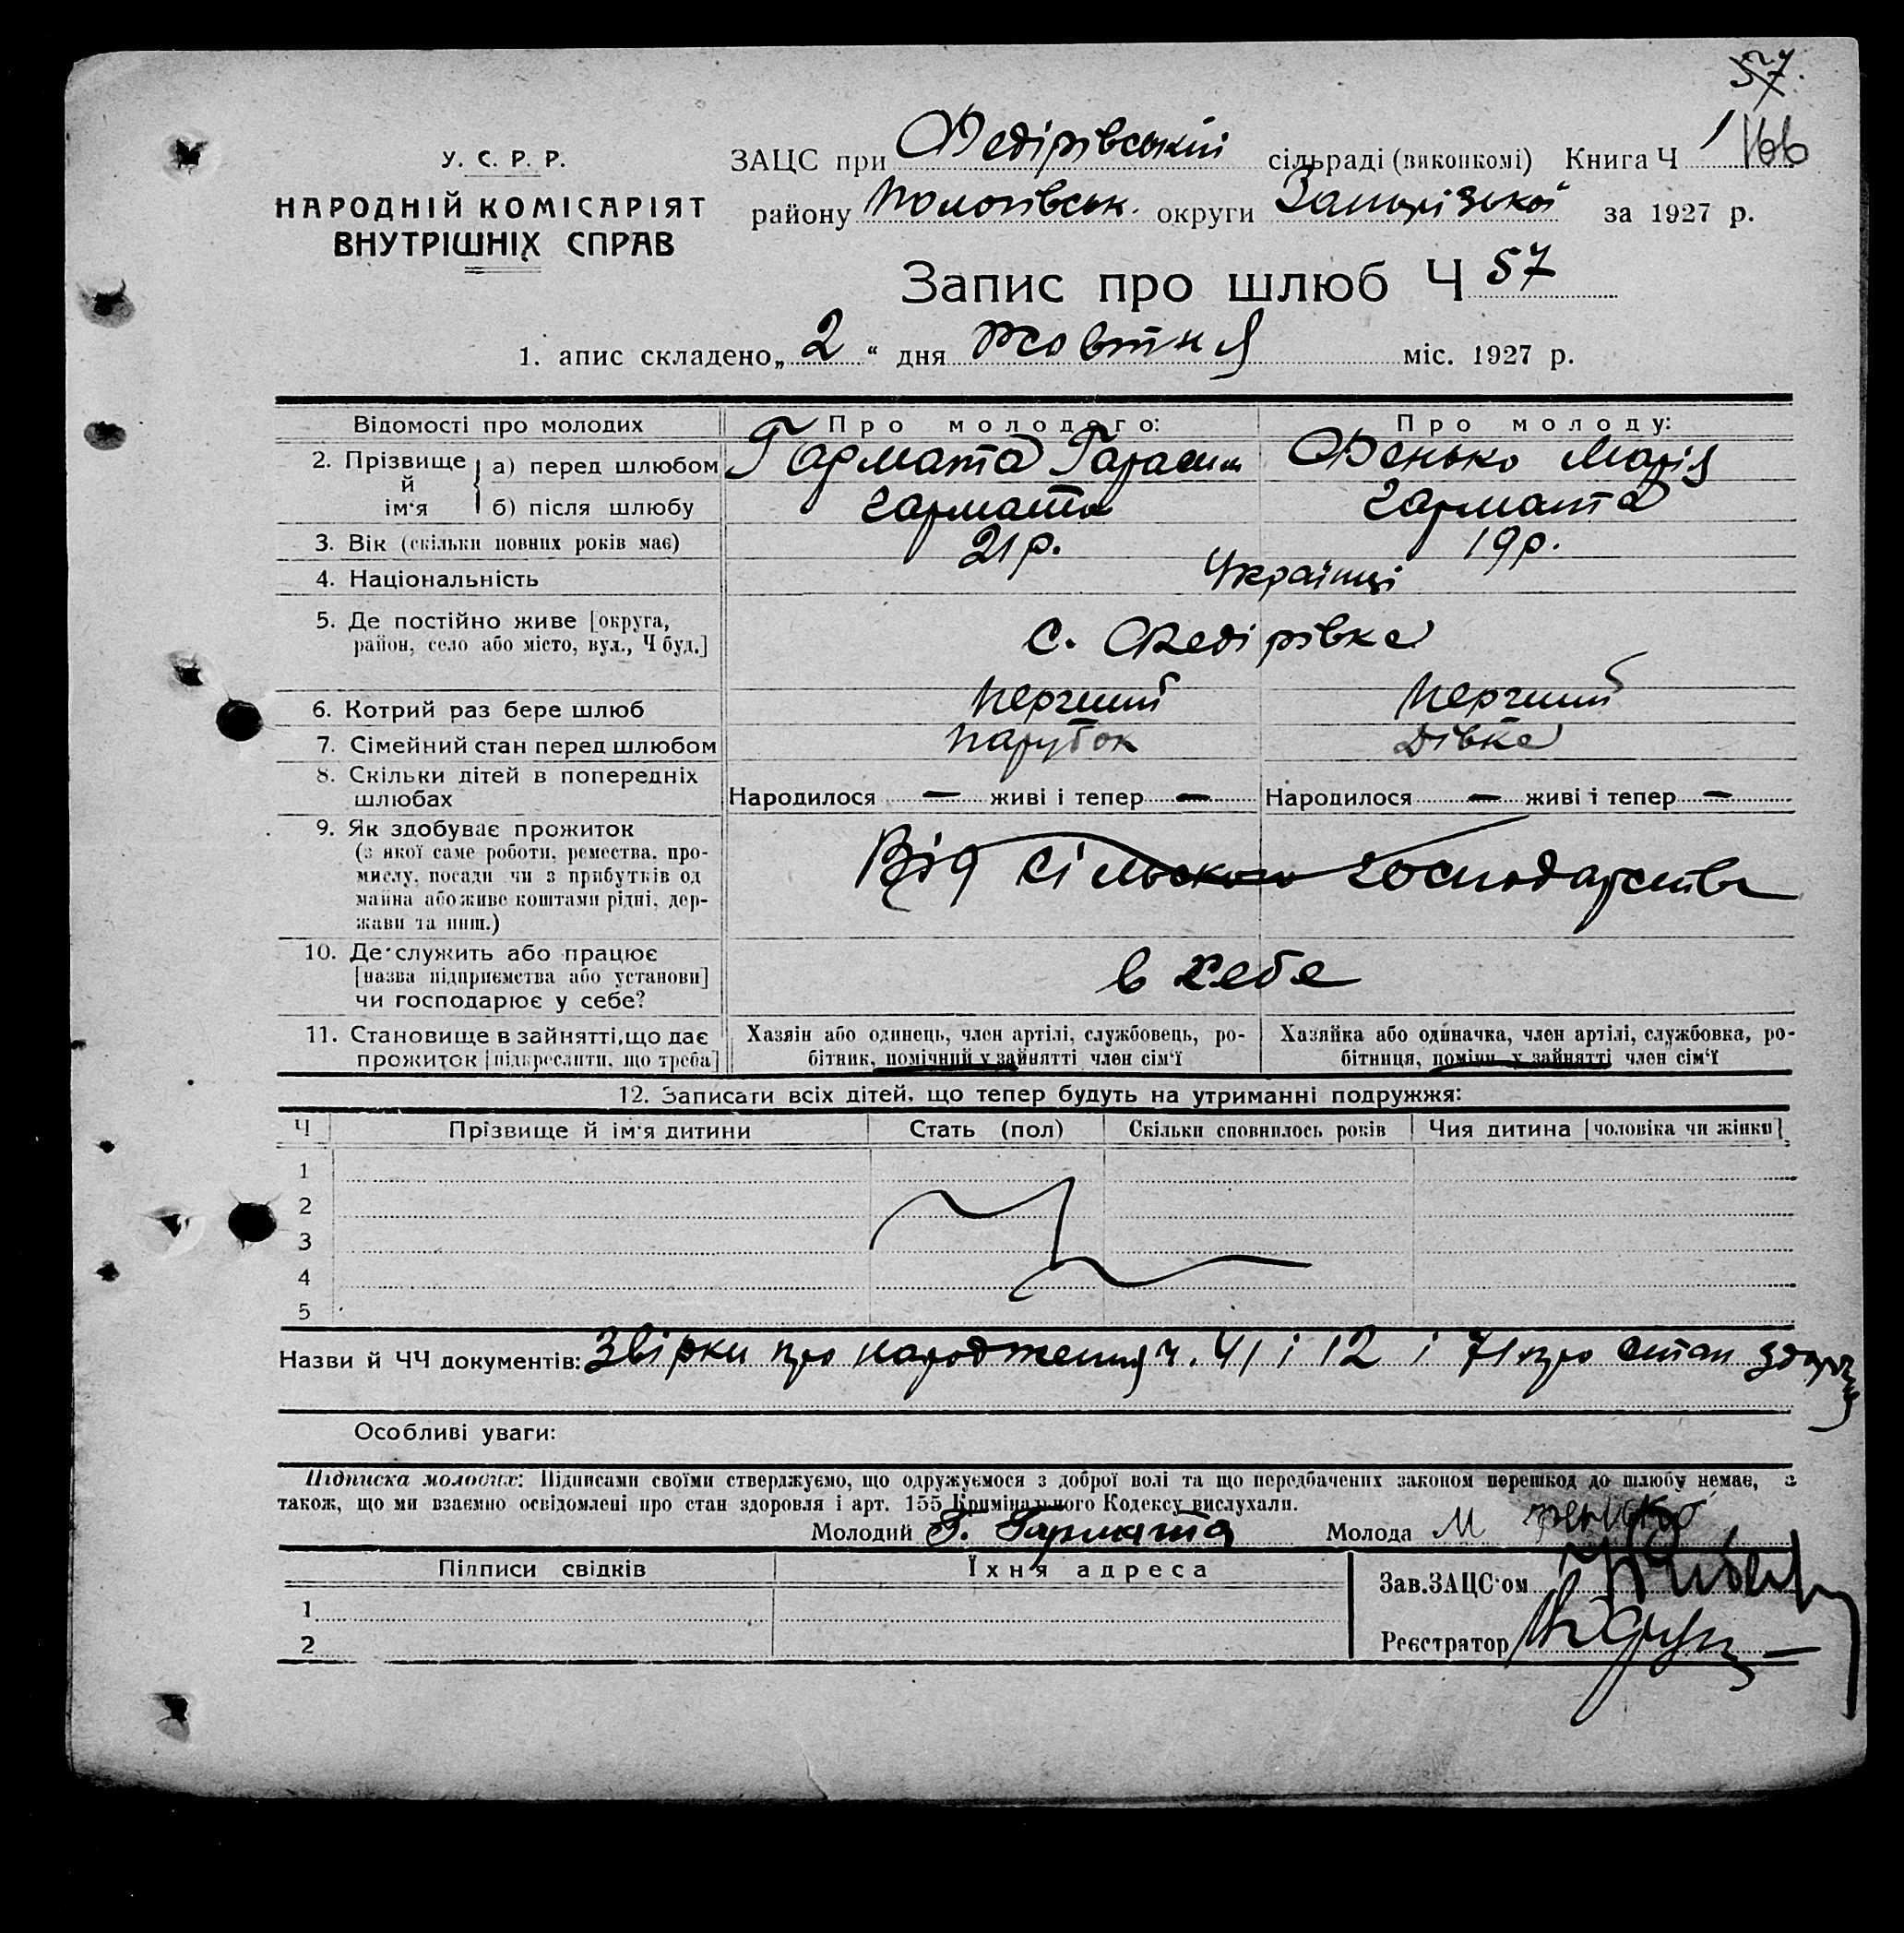 57.
У. С. Р. Р.
НАРОДНІЙ КОМІСАРІЯТ
ВНУТРІШНІХ СПРАВ
ЗАЦС при Федірівській сільраді (виконкомі) Книга Ч 1 166
району Пологівськ. округи Запорізької за 1927 р.
Запис про шлюб Ч 57
1. апис складено „ 2 “ дня жовтня міс. 1927 р.
Відомості про молодих Про молодого: Про молоду:
2. Прізвище й ім'я а) перед шлюбом Гармата Гарасим Фенько Марія
б) після шлюбу Гармата Гармата
3. Вік (скільки повних років має) 21 р. 19 р.
4. Національність Українці
5. Де постійно живе [округа,
район, село або місто, вул., Ч буд.] с. Федірівка
6. Котрий раз бере шлюб перший перший
7. Сімейний стан перед шлюбом парубок дівка
8. Скільки дітей в попередніх
шлюбах Народилося — живі і тепер — Народилося — живі і тепер —
9. Як здобуває прожиток
(з якої саме роботи, ремества, про-
мислу, посади чи з прибутків од
майна або живе коштами рідні, дер-
жави та инш.)
Від сільського господарства
10. Де служить або працює
[назва підприємства або установи]
чи господарює у себе?
в себе
11. Становище в зайнятті, що дає
прожиток [підкреслити, що треба]
Хазяін або одинець, член артілі, службовець, ро-
бітник, помічний у зайнятті член сім'ї
Хазяйка або одиначка, член артілі, службовка, ро-
бітниця, помічн. у зайнятті член сім'ї
12. Записати всіх дітей, що тепер будуть на утриманні подружжя:
Ч Прізвище й ім'я дитини Стать (пол) Скільки сповнилось років Чия дитина [чоловіка чи жінки]
1
2
3
4
5
Назви й ЧЧ документів: Звірки про народження ч. 41 і 12 і 71 про стан
Особливі уваги:
Підписка молодих: Підписами своїми стверджуємо, що одружуємося з доброї волі та що передбачених законом перешкод до шлюбу немає, а
також, що ми взаємно освідомлені про стан здоровля і арт. 155 Кримінального Кодексу вислухали.
Молодий Г. Гармата Молода М Фенько
Підписи свідків Їхня адреса
Зав. ЗАЦС'ом
1
Реєстратор
2